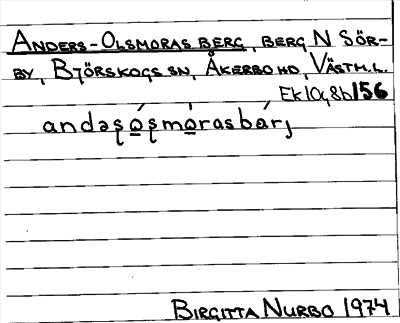 ANDERS-OLSMORAS BERG, BERG N SÖR-
BY, BJÖRSKOGS SN, ÅKERBO HD, VÄSTM.L.
Ek10g8b156
andəʂǫ́ʂmǫ̍rasbárj
BIRGITTA NURBO 1974